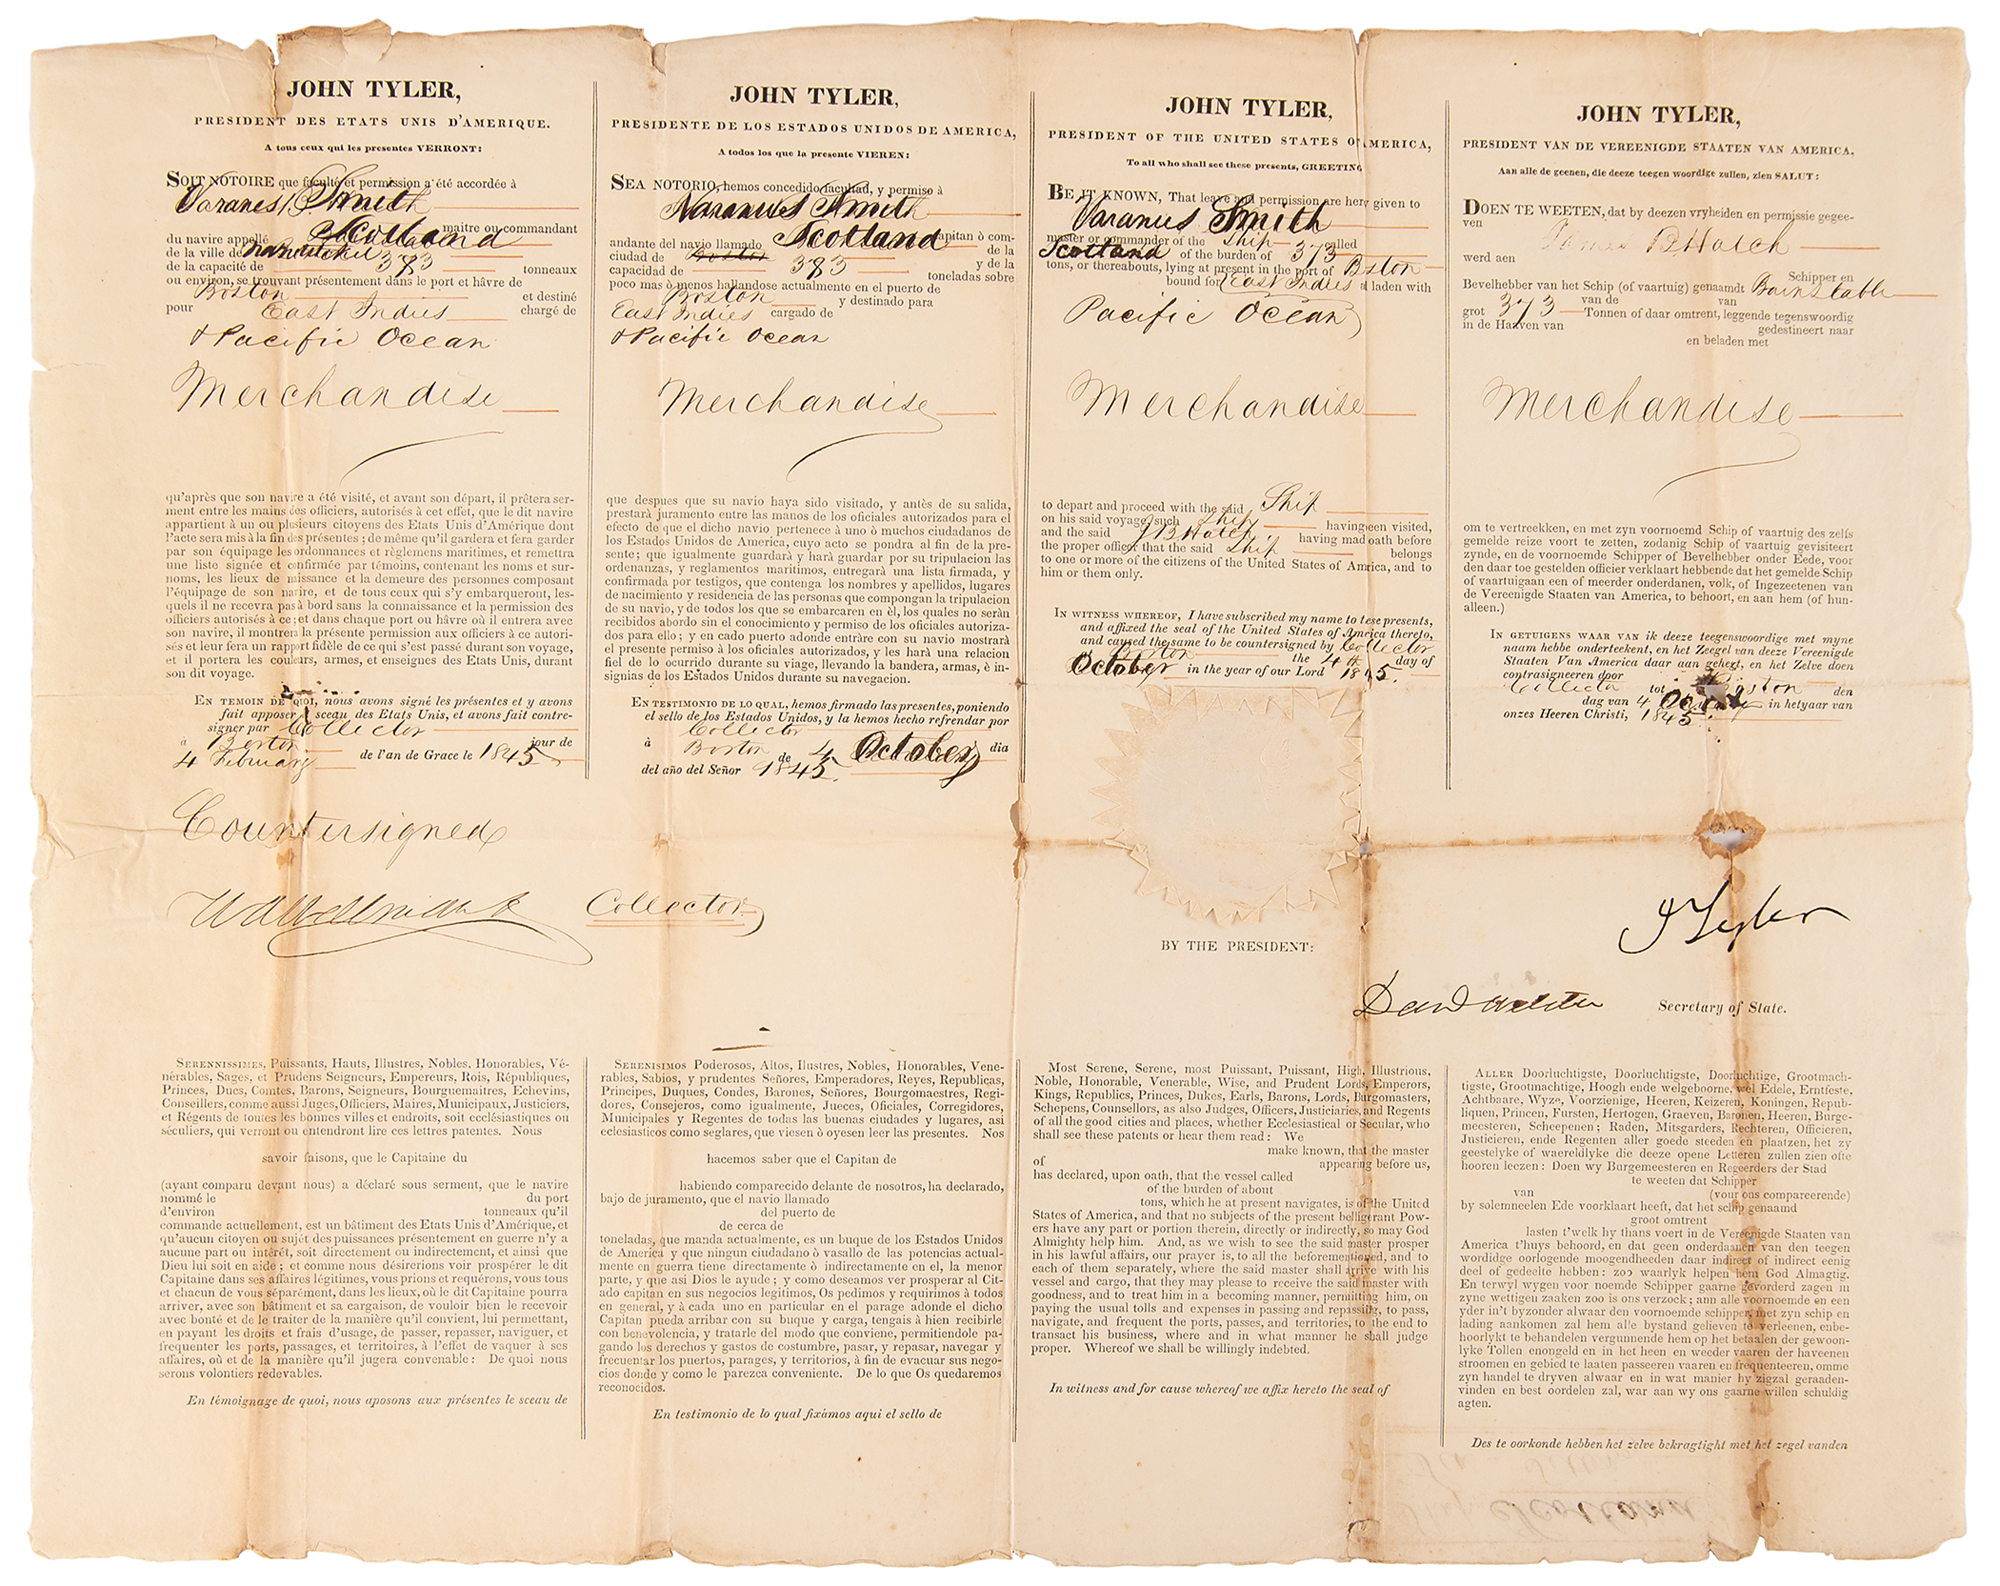 JOHN TYLER,
PRESIDENT DES ETATS UNIS D'AMERIQUE.
A tous ceux qui les presentes VERRONT:
SOIT NOTOIRE que faculté et permission a été accordée à
Varanes Smith
maitre ou commandant
du navire appellé Scotland
de la ville de
de la capacité de 373 tonneaux
ou environ, se trouvant présentement dans le port et hâvre de
Boston et destiné
pour East Indies chargé de
& Pacific Ocean
Merchandise
qu'après que son navire a été visité, et avant son départ, il prêtera ser-
ment entre les mains des officiers, autorisés à cet effet, que le dit navire
appartient à un ou plusieurs citoyens des Etats Unis d'Amérique dont
l'acte sera mis à la fin des présentes; de même qu'il gardera et fera garder
par son équipage les ordonnances et règlemens maritimes, et remettra
une liste signée et confirmée par témoins, contenant les noms et sur-
noms, les lieux de naissance et la demeure des personnes composant
l'équipage de son navire, et de tous ceux qui s'y embarqueront, les-
quels il ne recevra pas à bord sans la connaissance et la permission des
officiers autorisés à ce; et dans chaque port ou hâvre où il entrera avec
son navire, il montrera la présente permission aux officiers à ce autori-
sés et leur fera un rapport fidèle de ce qui s'est passé durant son voyage,
et il portera les couleurs, armes, et enseignes des Etats Unis, durant
son dit voyage.
EN TEMOIN DE QUOI, nous avons signé les présentes et y avons
fait apposer le sceau des Etats Unis, et avons fait contre-
signer par Collector
à Boston jour de
4 February de l'an de Grace le 1845
JOHN TYLER,
PRESIDENTE DE LOS ESTADOS UNIDOS DE AMERICA,
A todos los que la presente VIEREN:
SEA NOTORIO, hemos concedido facultad, y permiso à
Varanus Smith
capitan ò com-
andante del navio llamado Scotland de la
ciudad de Boston y de la
capacidad de 373 toneladas sobre
poco mas ò menos hallandose actualmente en el puerto de
Boston y destinado para
East Indies cargado de
& Pacific Ocean
Merchandise
que despues que su navio haya sido visitado, y antès de su salida,
prestarà juramento entre las manos de los oficiales autorizados para el
efecto de que el dicho navio pertenece à uno ò muchos ciudadanos de
los Estados Unidos de America, cuyo acto se pondra al fin de la pre-
sente; que igualmente guardarà y harà guardar por su tripulacion las
ordenanzas, y reglamentos maritimos, entregarà una lista firmada, y
confirmada por testigos, que contenga los nombres y apellidos, lugares
de nacimiento y residencia de las personas que compongan la tripulacion
de su navio, y de todos los que se embarcaren en èl, los quales no seràn
recibidos abordo sin el conocimiento y permiso de los oficiales autoriza-
dos para ello; y en cado puerto adonde entràre con su navio mostrarà
el presente permiso à los oficiales autorizados, y les harà una relacion
fiel de lo ocurrido durante su viage, llevando la bandera, armas, è in-
signias de los Estados Unidos durante su navegacion.
EN TESTIMONIO DE LO QUAL, hemos firmado las presentes, poniendo
el sello de los Estados Unidos, y la hemos hecho refrendar por
Collector
à Boston de 4 October dia
del año del Señor 1845.
JOHN TYLER,
PRESIDENT OF THE UNITED STATES OF AMERICA,
To all who shall see these presents, GREETING
BE IT KNOWN, That leave and permission are here given to
Varanus Smith
master or commander of the Ship called
Scotland of the burden of 373
tons, or thereabouts, lying at present in the port of Boston
bound for East Indies laden with
Pacific Ocean
Merchandise
to depart and proceed with the said Ship
on his said voyage, such Ship having been visited,
and the said J B Hatch having made oath before
the proper officer that the said Ship belongs
to one or more of the citizens of the United States of America, and to
him or them only.
IN WITNESS WHEREOF, I have subscribed my name to these presents,
and affixed the seal of the United States of America thereto,
and caused the same to be countersigned by Collector
Boston the 4th day of
October in the year of our Lord 1845.
JOHN TYLER,
PRESIDENT VAN DE VEREENIGDE STAATEN VAN AMERICA,
Aan alle de geenen, die deeze teegen woordige zullen, zien SALUT:
DOEN TE WEETEN, dat by deezen vryheiden en permissie gegee-
ven
James B Hatch
werd aen
Schipper en
Bevelhebber van het Schip (of vaartuig) genaamdt Barnstable
van de van
grot 373 Tonnen of daar omtrent, leggende tegenswoordig
in de Haaven van gedestineert naar
en beladen met
Merchandise
om te vertreekken, en met zyn voornoemd Schip of vaartuig des zelfs
gemelde reize voort te zetten, zodanig Schip of vaartuig gevisiteert
zynde, en de voornoemde Schipper of Bevelhebber onder Eede, voor
den daar toe gestelden officier verklaart hebbende dat het gemelde Schip
of vaartuigaan een of meerder onderdanen, volk, of Ingezeetenen van
de Vereenigde Staaten van America, to behoort, en aan hem (of hun-
alleen.)
IN GETUIGENS WAAR VAN ik deeze teegenswoordige met myne
naam hebbe onderteekent, en het Zeegel van deeze Vereenigde
Staaten Van America daar aan gehegt, en het Zelve doen
contrasigneren door
Collector tot Boston den
dag van 4 in hetyaar van
onzes Heeren Christi, 1845.
Countersigned
Collector
BY THE PRESIDENT:
J Tyler
Dan Webster Secretary of State.
SERENNISSIMES, Puissants, Hauts, Illustres, Nobles, Honorables, Vé-
nérables, Sages, et Prudens Seigneurs, Empereurs, Rois, Républiques,
Princes, Ducs, Comtes, Barons, Seigneurs, Bourguemaitres, Echevins,
Conseillers, comme aussi Juges, Officiers, Maires, Municipaux, Justiciers,
et Régents de toutes les bonnes villes et endroits, soit ecclésiastiques ou
séculiers, qui verront ou entendront lire ces lettres patentes. Nous
savoir faisons, que le Capitaine du
(ayant comparu devant nous) a déclaré sous serment, que le navire
nommé le du port
d'environ tonneaux qu'il
commande actuellement, est un bâtiment des Etats Unis d'Amérique, et
qu'aucun citoyen ou sujet des puissances présentement en guerre n'y a
aucune part ou intérêt, soit directement ou indirectement, et ainsi que
Dieu lui soit en aide; et comme nous désirerions voir prospérer le dit
Capitaine dans ses affaires légitimes, vous prions et requérons, vous tous
et chacun de vous séparément, dans les lieux, où le dit Capitaine pourra
arriver, avec son bâtiment et sa cargaison, de vouloir bien le recevoir
avec bonté et de le traiter de la manière qu'il convient, lui permettant,
en payant les droits et frais d'usage, de passer, repasser, naviguer, et
frequenter les ports, passages, et territoires, à l'effet de vaquer à ses
affaires, où et de la manière qu'il jugera convenable: De quoi nous
serons volontiers redevables.
En témoignage de quoi, nous aposons aux présentes le sceau de
SERENISIMOS Poderosos, Altos, Ilustres, Nobles, Honorables, Vene-
rables, Sabios, y prudentes Señores, Emperadores, Reyes, Republicas,
Principes, Duques, Condes, Barones, Señores, Bourgomaestres, Regi-
dores, Consejeros, como igualmente, Jueces, Oficiales, Corregidores,
Municipales y Regentes de todas las buenas ciudades y lugares, asi
eclesiasticos como seglares, que viesen ò oyesen leer las presentes. Nos
hacemos saber que el Capitan de
habiendo comparecido delante de nosotros, ha declarado,
bajo de juramento, que el navio llamado
del puerto de
de cerca de
toneladas, que manda actualmente, es un buque de los Estados Unidos
de America y que ningun ciudadano ò vasallo de las potencias actual-
mente en guerra tiene directamente ò indirectamente en el, la menor
parte, y que asi Dios le ayude; y como deseamos ver prosperar al Cit-
ado capitan en sus negocios legitimos, Os pedimos y requirimos à todos
en general, y à cada uno en particular en el parage adonde el dicho
Capitan pueda arribar con su buque y carga, tengais à hien recibirle
con benevolencia, y tratarle del modo que conviene, permitiendole pa-
gando los derechos y gastos de costumbre, pasar, y repasar, navegar y
frecuentar los puertos, parages, y territorios, à fin de evacuar sus nego-
cios donde y como le parezca conveniente. De lo que Os quedaremos
reconocidos.
En testimonio de lo qual fixámos aqui el sello de
Most Serene, Serene, most Puissant, Puissant, High, Illustrious,
Noble, Honorable, Venerable, Wise, and Prudent Lords, Emperors,
Kings, Republics, Princes, Dukes, Earls, Barons, Lords, Burgomasters,
Schepens, Counsellors, as also Judges, Officers, Justiciaries, and Regents
of all the good cities and places, whether Ecclesiastical or Secular, who
shall see these patents or hear them read: We
make known, that the master
of appearing before us,
has declared, upon oath, that the vessel called
of the burden of about
tons, which he at present navigates, is of the United
States of America, and that no subjects of the present belligerant Pow-
ers have any part or portion therein, directly or indirectly, so may God
Almighty help him. And, as we wish to see the said master prosper
in his lawful affairs, our prayer is, to all the beforementioned, and to
each of them separately, where the said master shall arrive with his
vessel and cargo, that they may please to receive the said master with
goodness, and to treat him in a becoming manner, permitting him, on
paying the usual tolls and expenses in passing and repassing, to pass,
navigate, and frequent the ports, passes, and territories, to the end to
transact his business, where and in what manner he shall judge
proper. Whereof we shall be willingly indebted.
In witness and for cause whereof we affix hereto the seal of
ALLER Doorluchtigste, Doorluchtigste, Doorluchtige, Grootmach-
tigste, Grootmachtige, Hoogh ende welgeboorne, wel Edele, Erntfeste,
Achtbaare, Wyze, Voorzienige, Heeren, Keizeren, Koningen, Repub-
liquen, Princen, Fursten, Hertogen, Graeven, Baronen, Heeren, Burge-
meesteren, Scheepenen; Raden, Mitsgarders, Rechteren, Officieren,
Justicieren, ende Regenten aller goede steeden en plaatzen, het zy
geestelyke of waereldlyke die deeze opene Letteren zullen zien ofte
hooren leezen: Doen wy Burgemeesteren en Regeerders der Stad
te weeten dat Schipper
van (voor ons compareerende)
by solemneelen Ede voorklaart heeft, dat het schip genaamd
groot omtrent
lasten t'welk hy thans voert in de Vereenigde Staaten van
America t'huys behoord, en dat geen onderdaanen van den teegen
wordidge oorlogende moogendheeden daar indirect of indirect eenig
deel of gedeelte hebben: zoo waarlyk helpen hem God Almagtig.
En terwyl wygen voor noemde Schipper gaarne gevorderd zagen in
zyne wettigen zaaken zoo is ons verzock; aan alle voornoemde en een
yder in't byzonder alwaar den voornoemde schipper, met zyn schip en
lading aankomen zal hem alle bystand gelieven te verleenen, enbe-
hoorlykt te behandelen vergunnende hem op het betaalen der gewoon-
lyke Tollen enongeld en in het heen en weeder vaaren der haveenen
stroomen en gebied te laaten passeeren vaaren en frequenteeren, omme
zyn handel te dryven alwaar en in wat manier hy zigzal geraaden-
vinden en best oordelen zal, war aan wy ons gaarne willen schuldig
agten.
Des te oorkonde hebben het zelve bekragtight met het zegel vanden